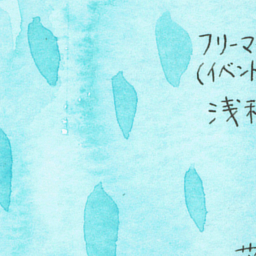 フリーマ
(イベント
浅